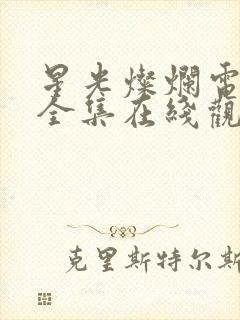 星光燦爛電
全集在綫觀
克里斯特尔斯